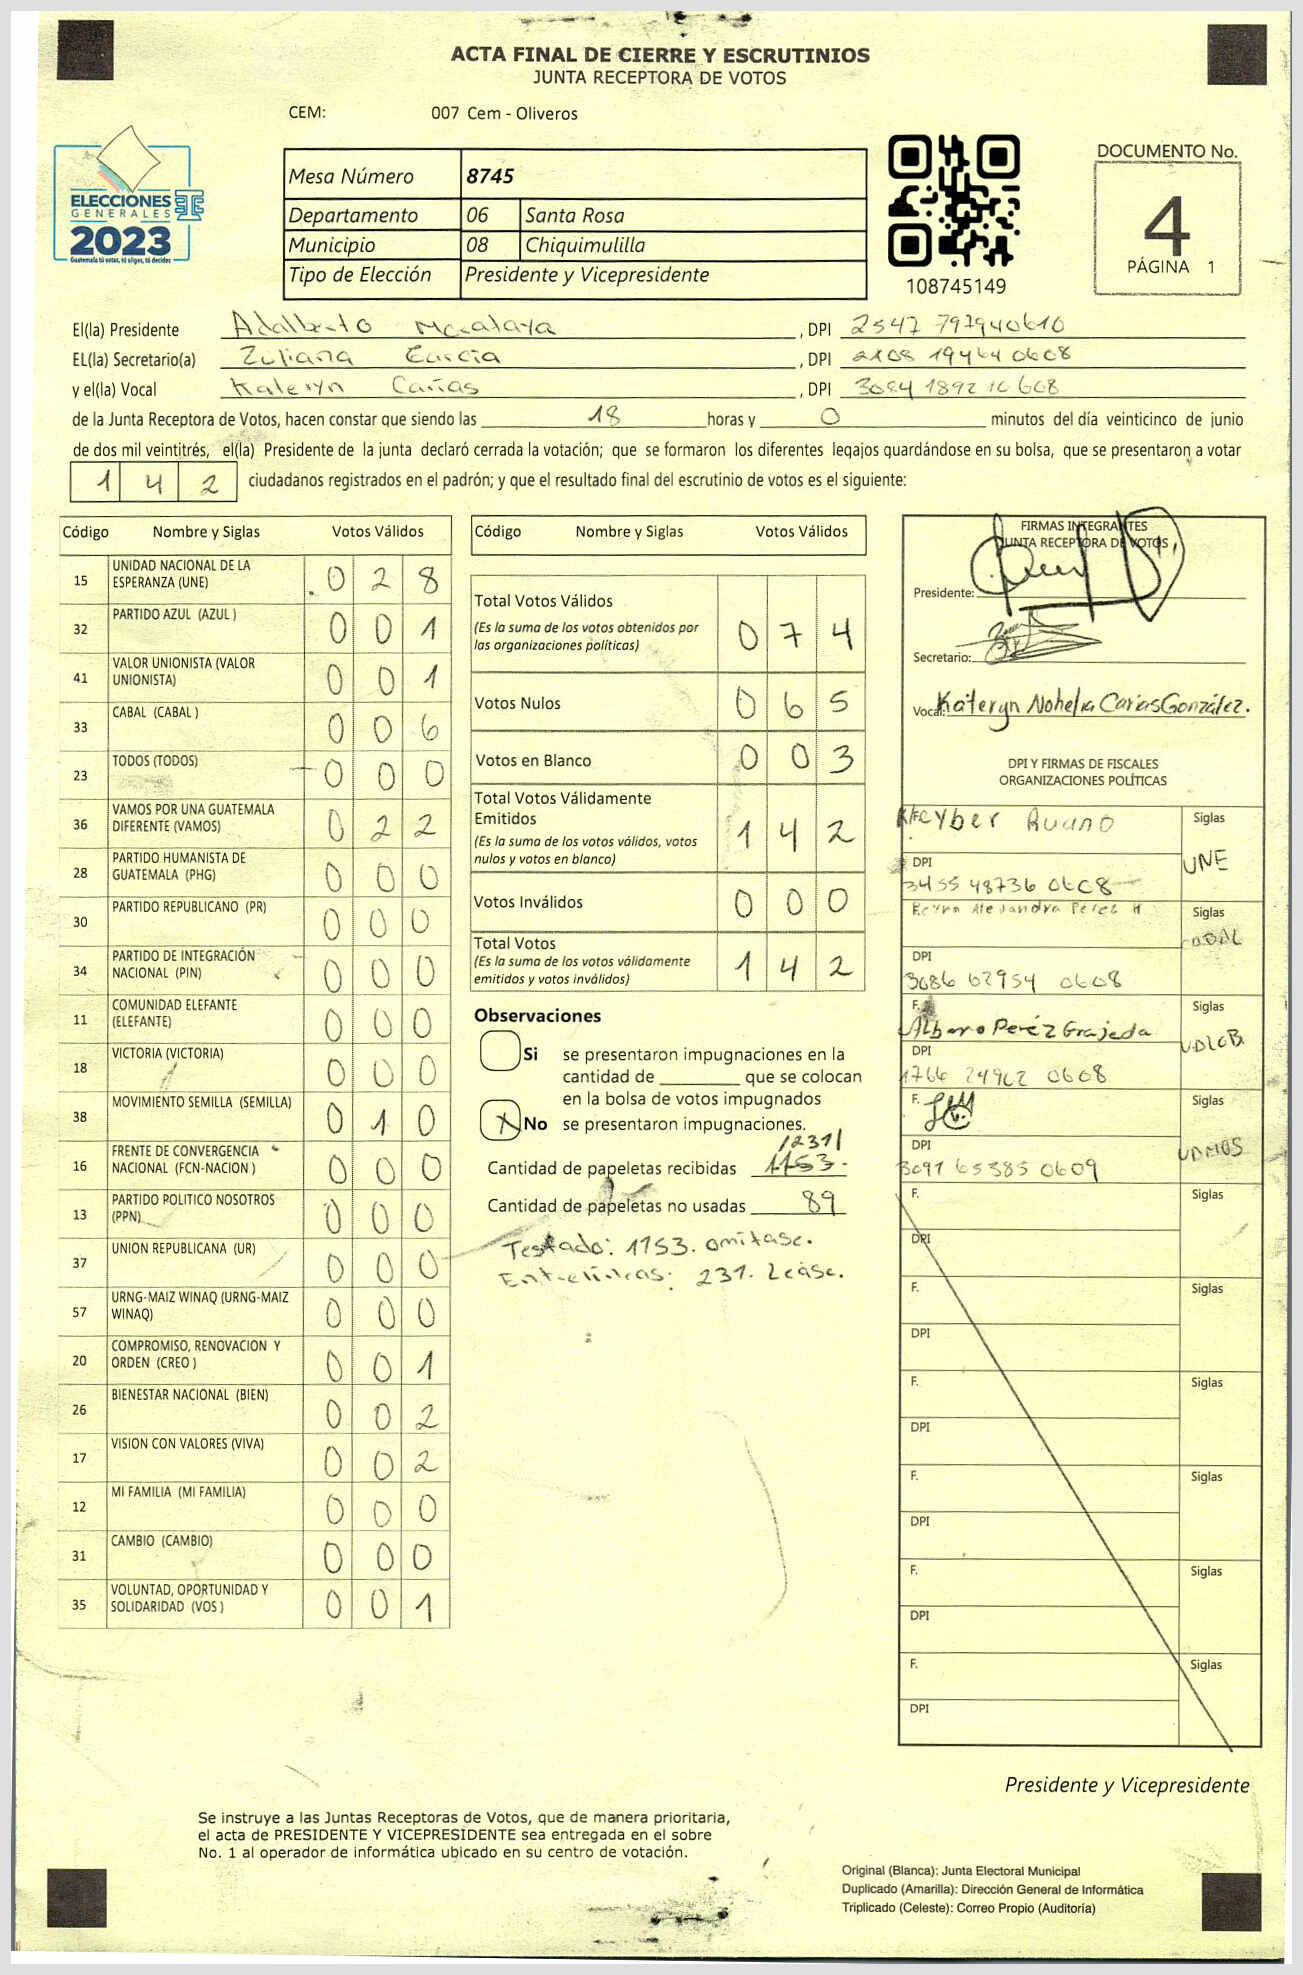 ACTA FINAL DE CIERRE Y ESCRUTINIOS
JUNTA RECEPTORA DE VOTOS
CEM: 007 Cem - Oliveros
ELECCIONES
GENERALES
2023
Guatemala tú votas, tú eliges, tú decides
Mesa Número 8745
Departamento 06 Santa Rosa
Municipio 08 Chiquimulilla
Tipo de Elección Presidente y Vicepresidente
108745149
DOCUMENTO No.
4
PÁGINA 1
El(la) Presidente Adalberto , DPI 2547 797940610
EL(la) Secretario(a) Zuliana García , DPI 2108 19464 0608
y el(la) Vocal Kateryn Cañas , DPI 3084 18921 0608
de la Junta Receptora de Votos, hacen constar que siendo las 18 horas y 0 minutos del día veinticinco de junio
de dos mil veintitrés, el(la) Presidente de la junta declaró cerrada la votación; que se formaron los diferentes legajos guardándose en su bolsa, que se presentaron a votar
1 4 2 ciudadanos registrados en el padrón; y que el resultado final del escrutinio de votos es el siguiente:
Código Nombre y Siglas Votos Válidos
15 UNIDAD NACIONAL DE LA ESPERANZA (UNE) 0 2 8
32 PARTIDO AZUL (AZUL ) 0 0 1
41 VALOR UNIONISTA (VALOR UNIONISTA) 0 0 1
33 CABAL (CABAL ) 0 0 6
23 TODOS (TODOS) 0 0 0
36 VAMOS POR UNA GUATEMALA DIFERENTE (VAMOS) 0 2 2
28 PARTIDO HUMANISTA DE GUATEMALA (PHG) 0 0 0
30 PARTIDO REPUBLICANO (PR) 0 0 0
34 PARTIDO DE INTEGRACIÓN NACIONAL (PIN) 0 0 0
11 COMUNIDAD ELEFANTE (ELEFANTE) 0 0 0
18 VICTORIA (VICTORIA) 0 0 0
38 MOVIMIENTO SEMILLA (SEMILLA) 0 1 0
16 FRENTE DE CONVERGENCIA NACIONAL (FCN-NACION ) 0 0 0
13 PARTIDO POLITICO NOSOTROS (PPN) 0 0 0
37 UNION REPUBLICANA (UR) 0 0 0
57 URNG-MAIZ WINAQ (URNG-MAIZ WINAQ) 0 0 0
20 COMPROMISO, RENOVACION Y ORDEN (CREO ) 0 0 1
26 BIENESTAR NACIONAL (BIEN) 0 0 2
17 VISION CON VALORES (VIVA) 0 0 2
12 MI FAMILIA (MI FAMILIA) 0 0 0
31 CAMBIO (CAMBIO) 0 0 0
35 VOLUNTAD, OPORTUNIDAD Y SOLIDARIDAD (VOS ) 0 0 1
Código Nombre y Siglas Votos Válidos
Total Votos Válidos
(Es la suma de los votos obtenidos por las organizaciones políticas) 0 7 4
Votos Nulos 0 6 5
Votos en Blanco 0 0 3
Total Votos Válidamente Emitidos
(Es la suma de los votos válidos, votos nulos y votos en blanco) 1 4 2
Votos Inválidos 0 0 0
Total Votos
(Es la suma de los votos válidamente emitidos y votos inválidos) 1 4 2
Observaciones
Si se presentaron impugnaciones en la
cantidad de ________ que se colocan
en la bolsa de votos impugnados
X No se presentaron impugnaciones.
/231/
Cantidad de papeletas recibidas 1153.
Cantidad de papeletas no usadas 89
Testado: 1153. omítase.
Entrelíneas: 231. Léase.
FIRMAS INTEGRANTES
JUNTA RECEPTORA DE VOTOS
Presidente:
Secretario:
Vocal: Kateryn Nohelia Carías González.
DPI Y FIRMAS DE FISCALES
ORGANIZACIONES POLÍTICAS
Kleyber Ruano Siglas
DPI UNE
3455 48736 0608
Reyna Alejandra Perez H Siglas
DPI CABAL
3086 02954 0608
F. Siglas
Albaro Peréz Grajeda
DPI
1766 24962 0608
F. Siglas
DPI VAMOS
3097 65385 0609
F. Siglas
DPI
F. Siglas
DPI
F. Siglas
DPI
F. Siglas
DPI
F. Siglas
DPI
F. Siglas
DPI
Presidente y Vicepresidente
Se instruye a las Juntas Receptoras de Votos, que de manera prioritaria,
el acta de PRESIDENTE Y VICEPRESIDENTE sea entregada en el sobre
No. 1 al operador de informática ubicado en su centro de votación.
Original (Blanca): Junta Electoral Municipal
Duplicado (Amarilla): Dirección General de Informática
Triplicado (Celeste): Correo Propio (Auditoría)